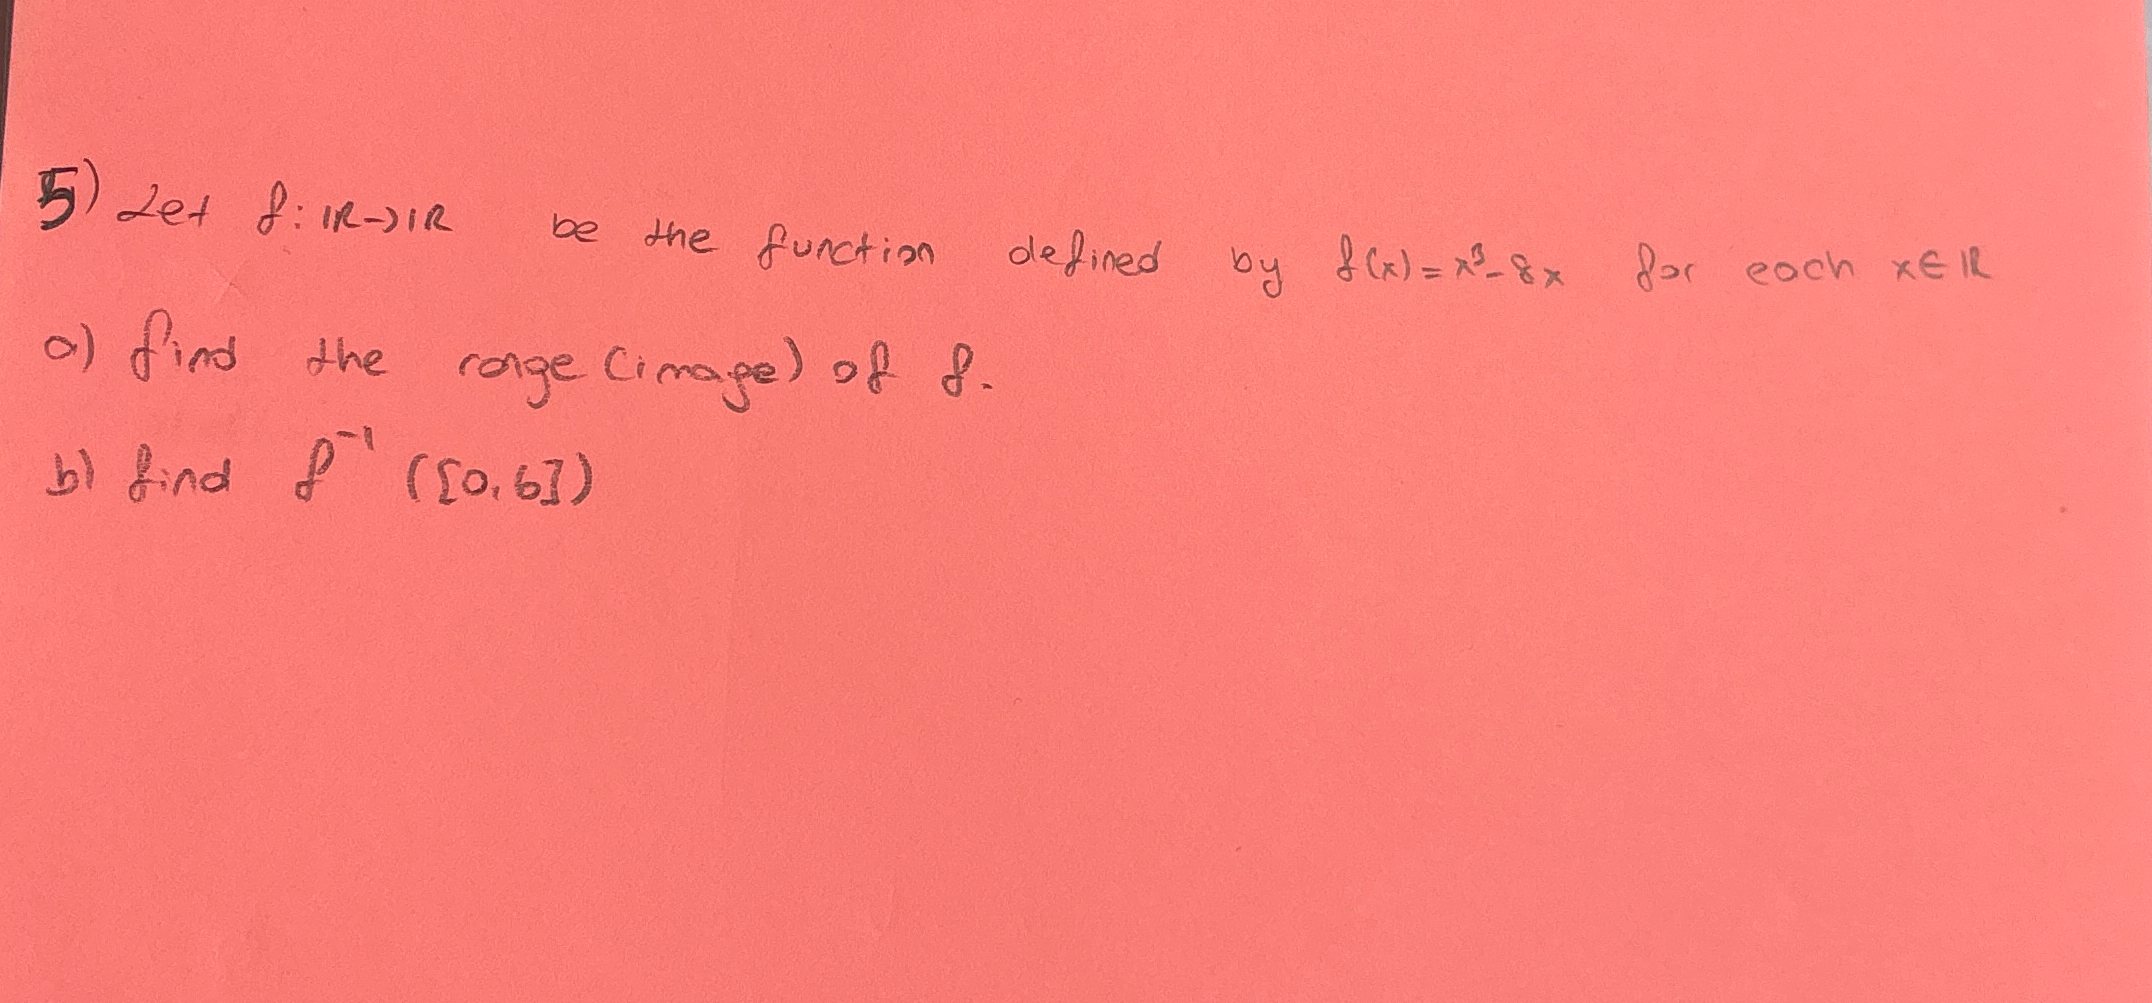 5) Let f: ℝ→ℝ be the function defined by f(x) = x³-8x for each x∈ℝ
a) find the range (image) of f.
b) find f⁻¹ ([0,6])